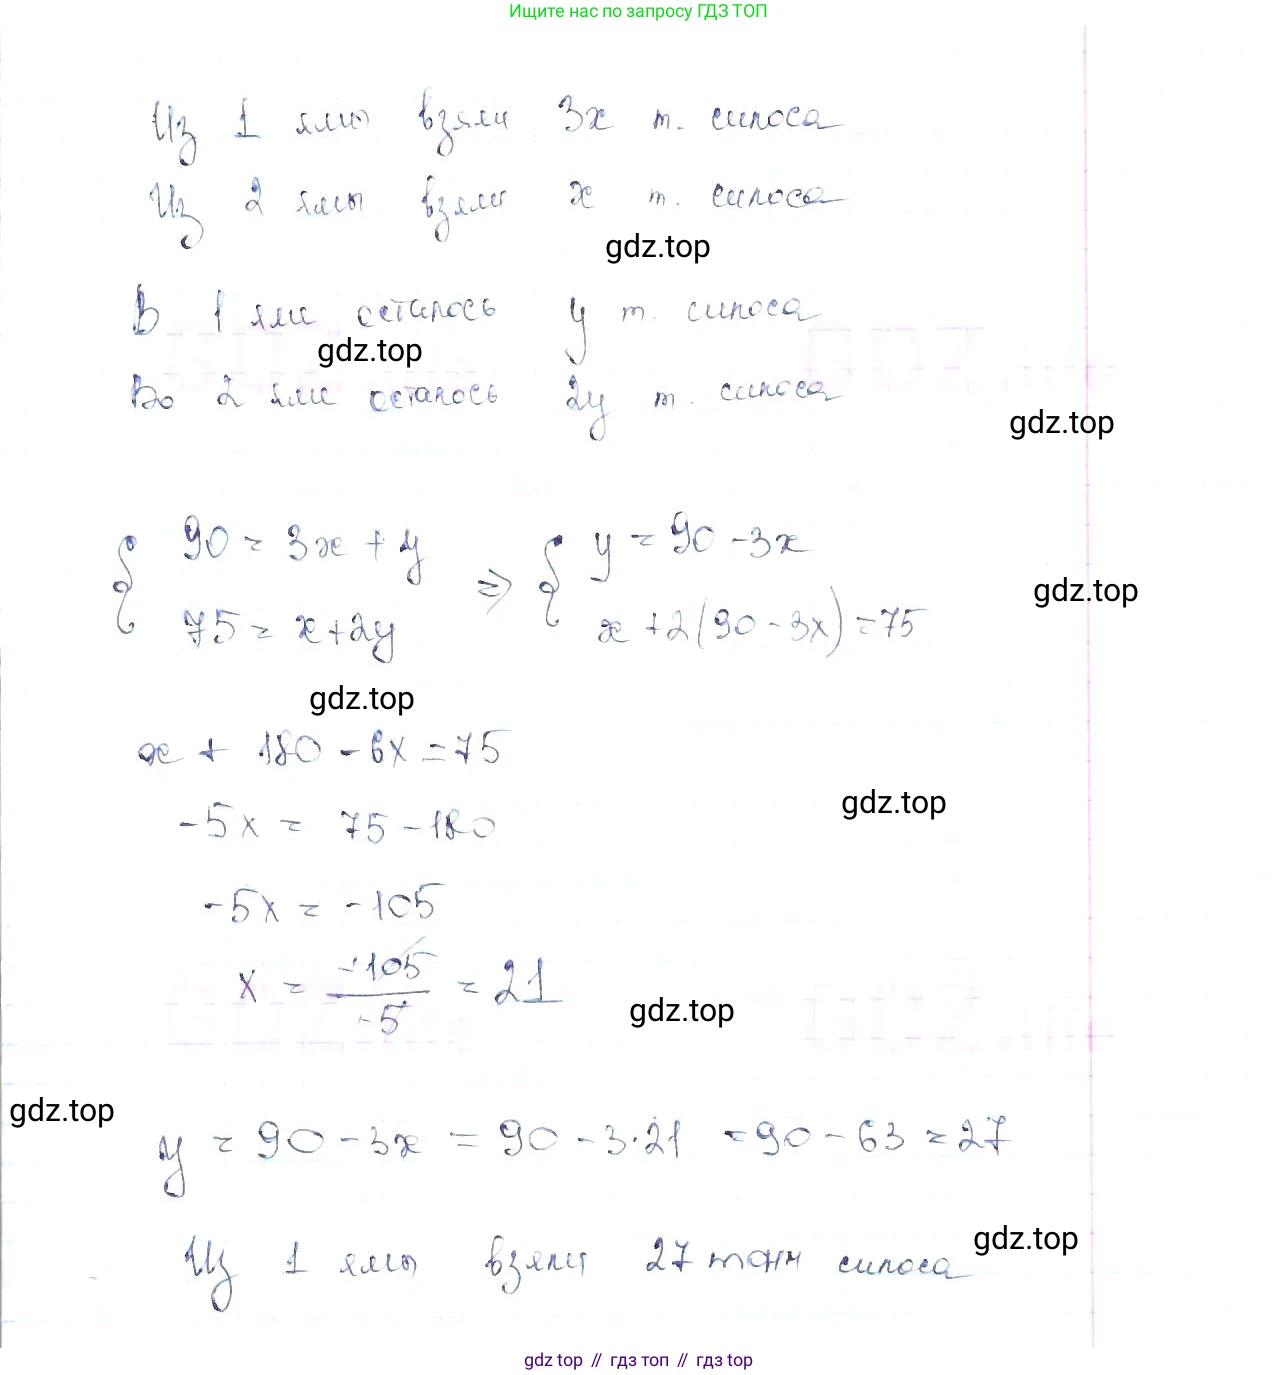 Ищите нас по запросу ГДЗ ТОП
Из 1 ямы взяли 3x т. силоса
Из 2 ямы взяли x т. силоса
gdz.top
В 1 яме осталось y т. силоса
gdz.top
Во 2 яме осталось 2y т. силоса
gdz.top
{ 90 = 3x + y ⇒ { y = 90 - 3x
gdz.top
75 = x + 2y x + 2(90 - 3x) = 75
gdz.top
x + 180 - 6x = 75
gdz.top
-5x = 75 - 180
-5x = -105
x = -105/-5 = 21
gdz.top
gdz.top
y = 90 - 3x = 90 - 3·21 = 90 - 63 = 27
gdz.top
Из 1 ямы взяли 27 тонн силоса
gdz top // гдз топ // гдз top